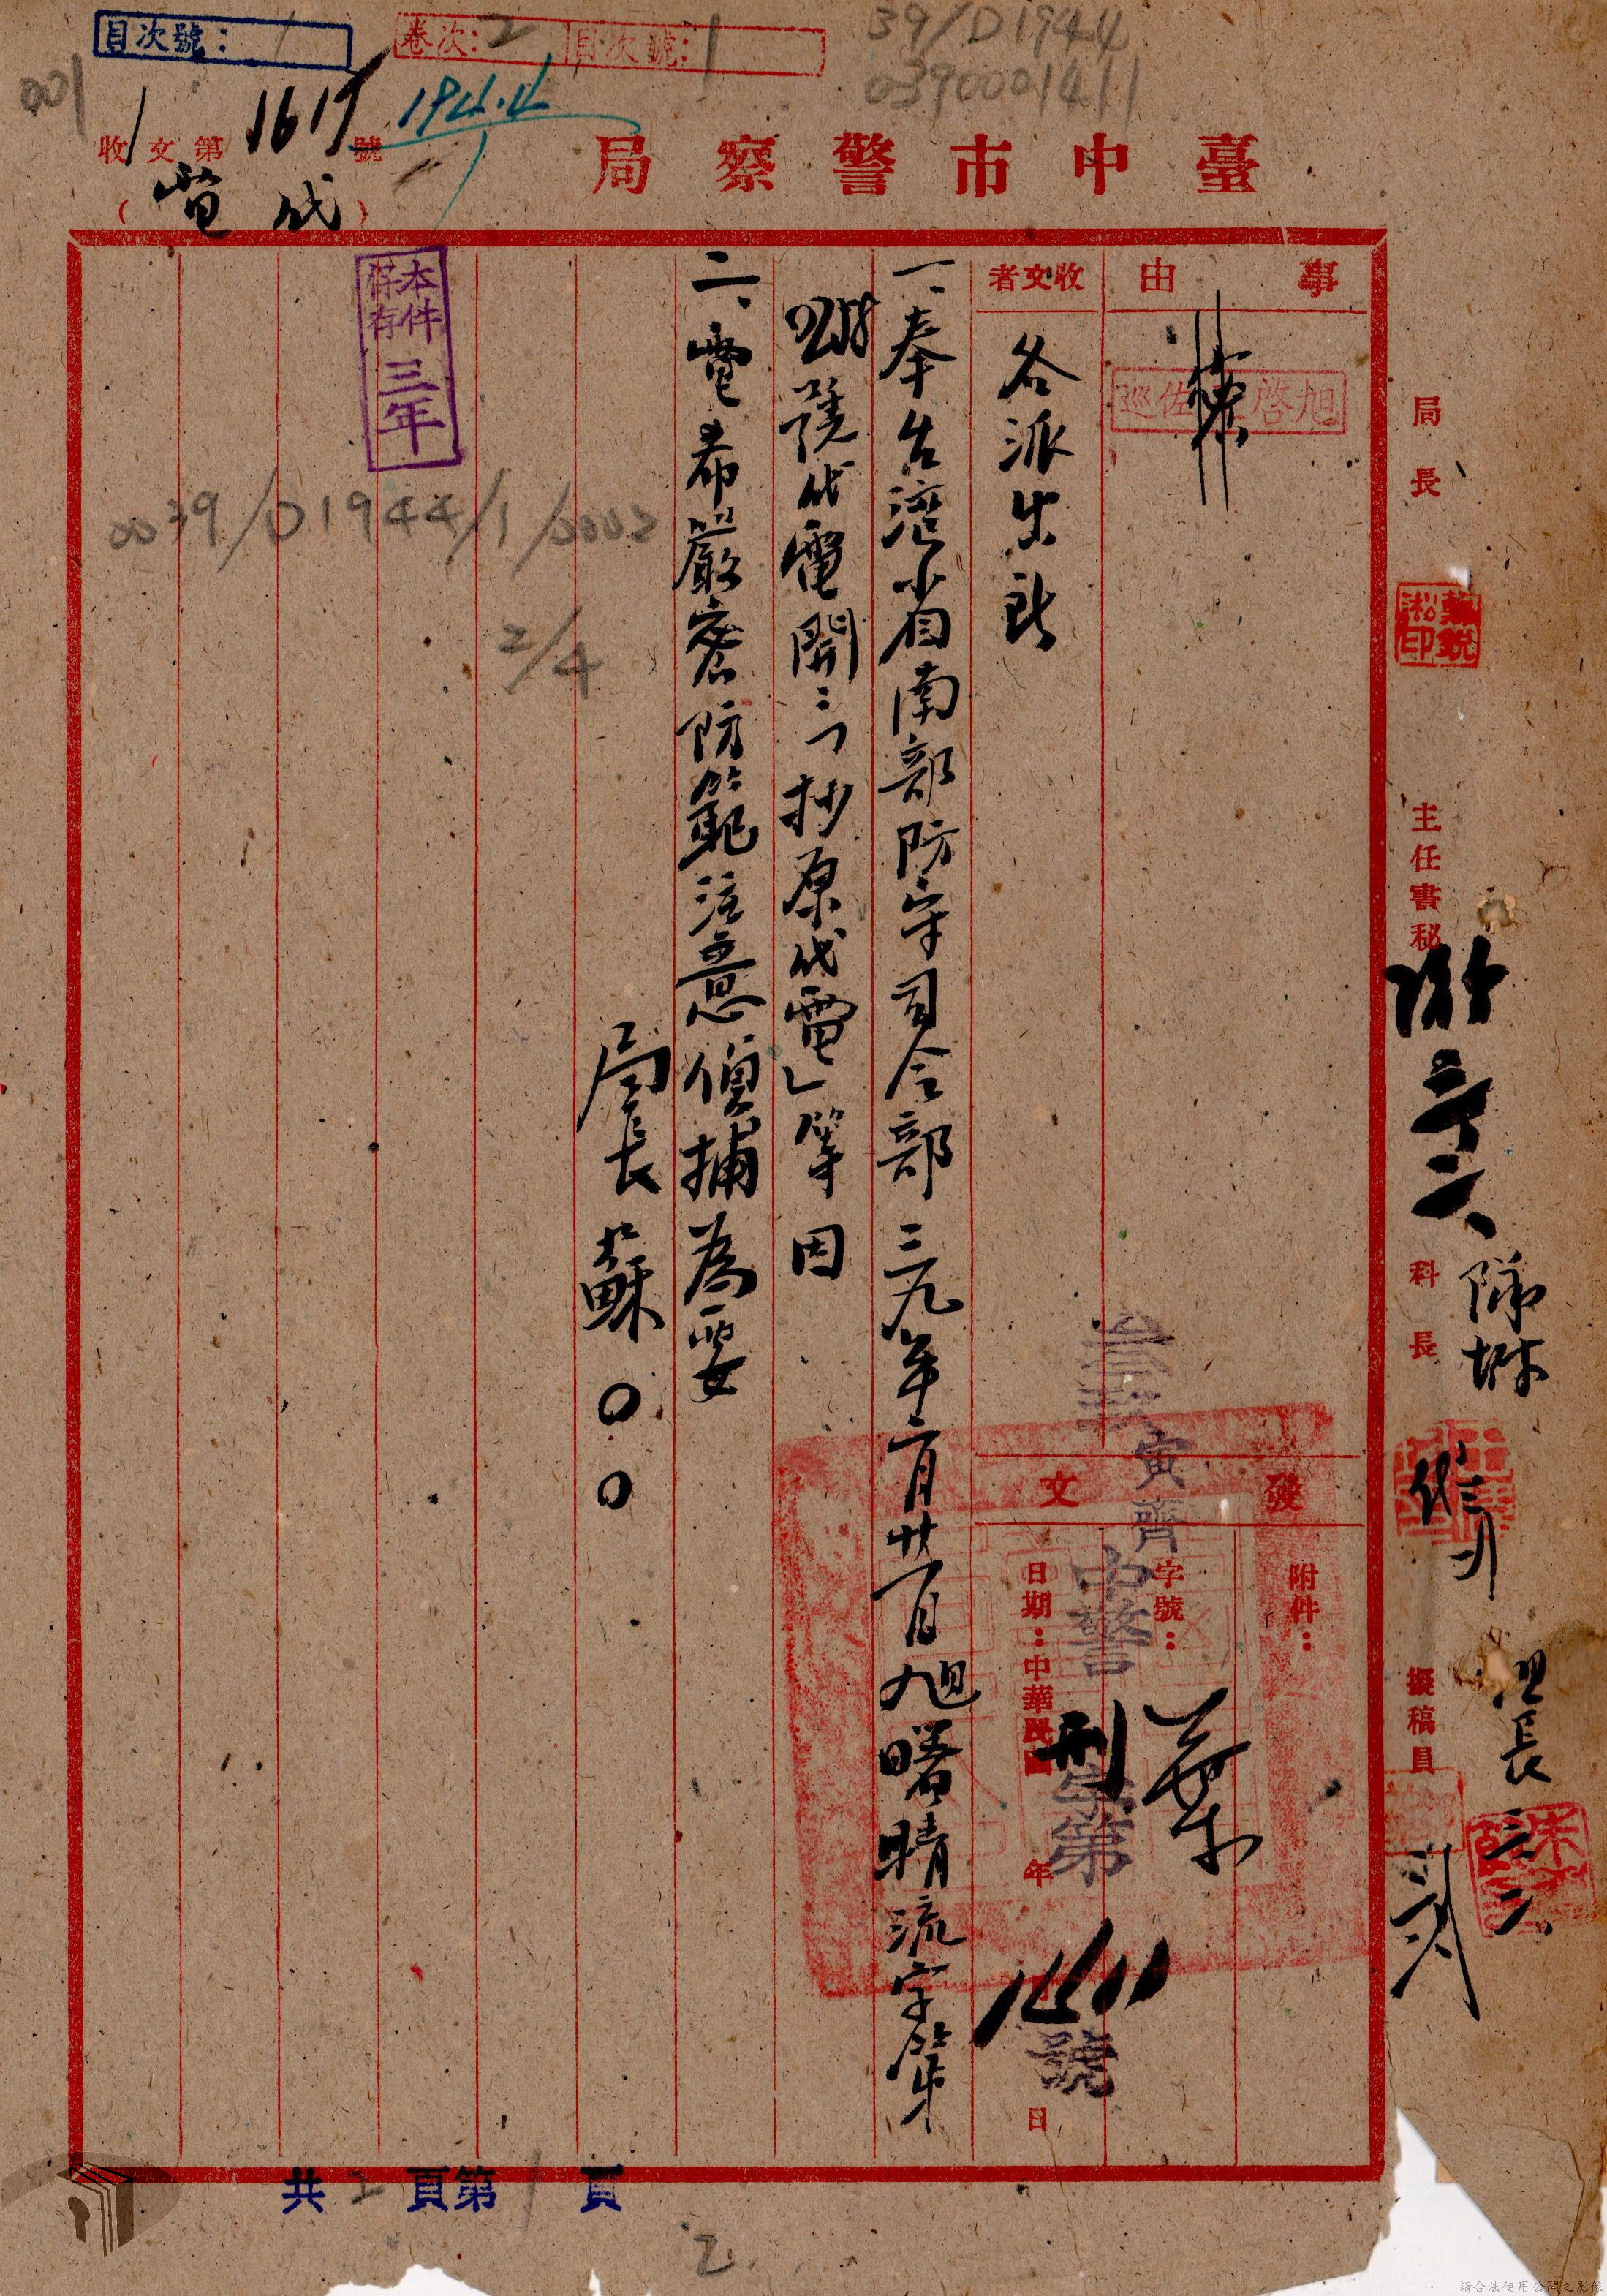 目次號：1
卷次：2 目次號：1
39/D1944
0390001411
001
194.4
收文第1617號
(代電)
臺中市警察局
事由
收文者
各派出所
一、奉台灣省南部防守司令部三九年二月廿一日旭曙晴流字第
0258號代電開：「抄原代電」等因
二、電希嚴密防範注意偵捕為要
局長蘇○○
本件保存三年
0039/D1944/1/0002
2/4
發文
附件：
字號：
日期：中華民國 年 日
寅齊
中警刑字第 號
葉
局長
蘇銳淞印
主任書秘
科長
擬稿員
組長
共2頁第1頁
2
請合法使用公開之影像